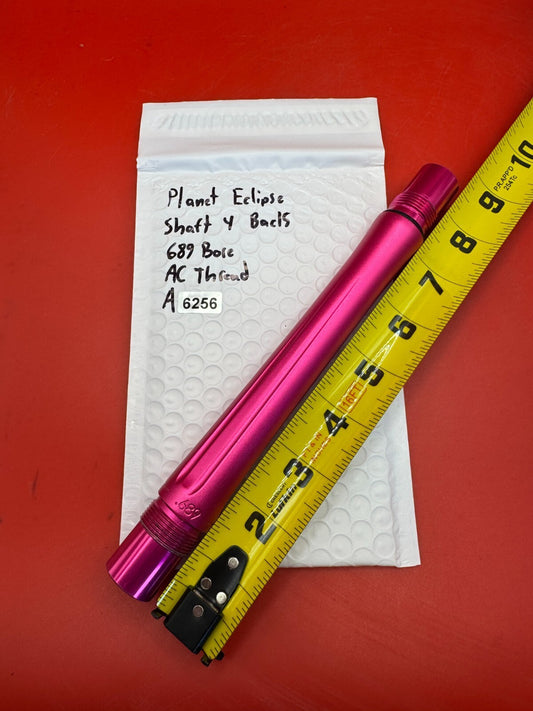 Planet Eclipse
Shaft 4 Backs
689 Bore
AC Thread
A 6256
.689
2 3 4 5 6 7 8 9 10
16FT
Lufkin